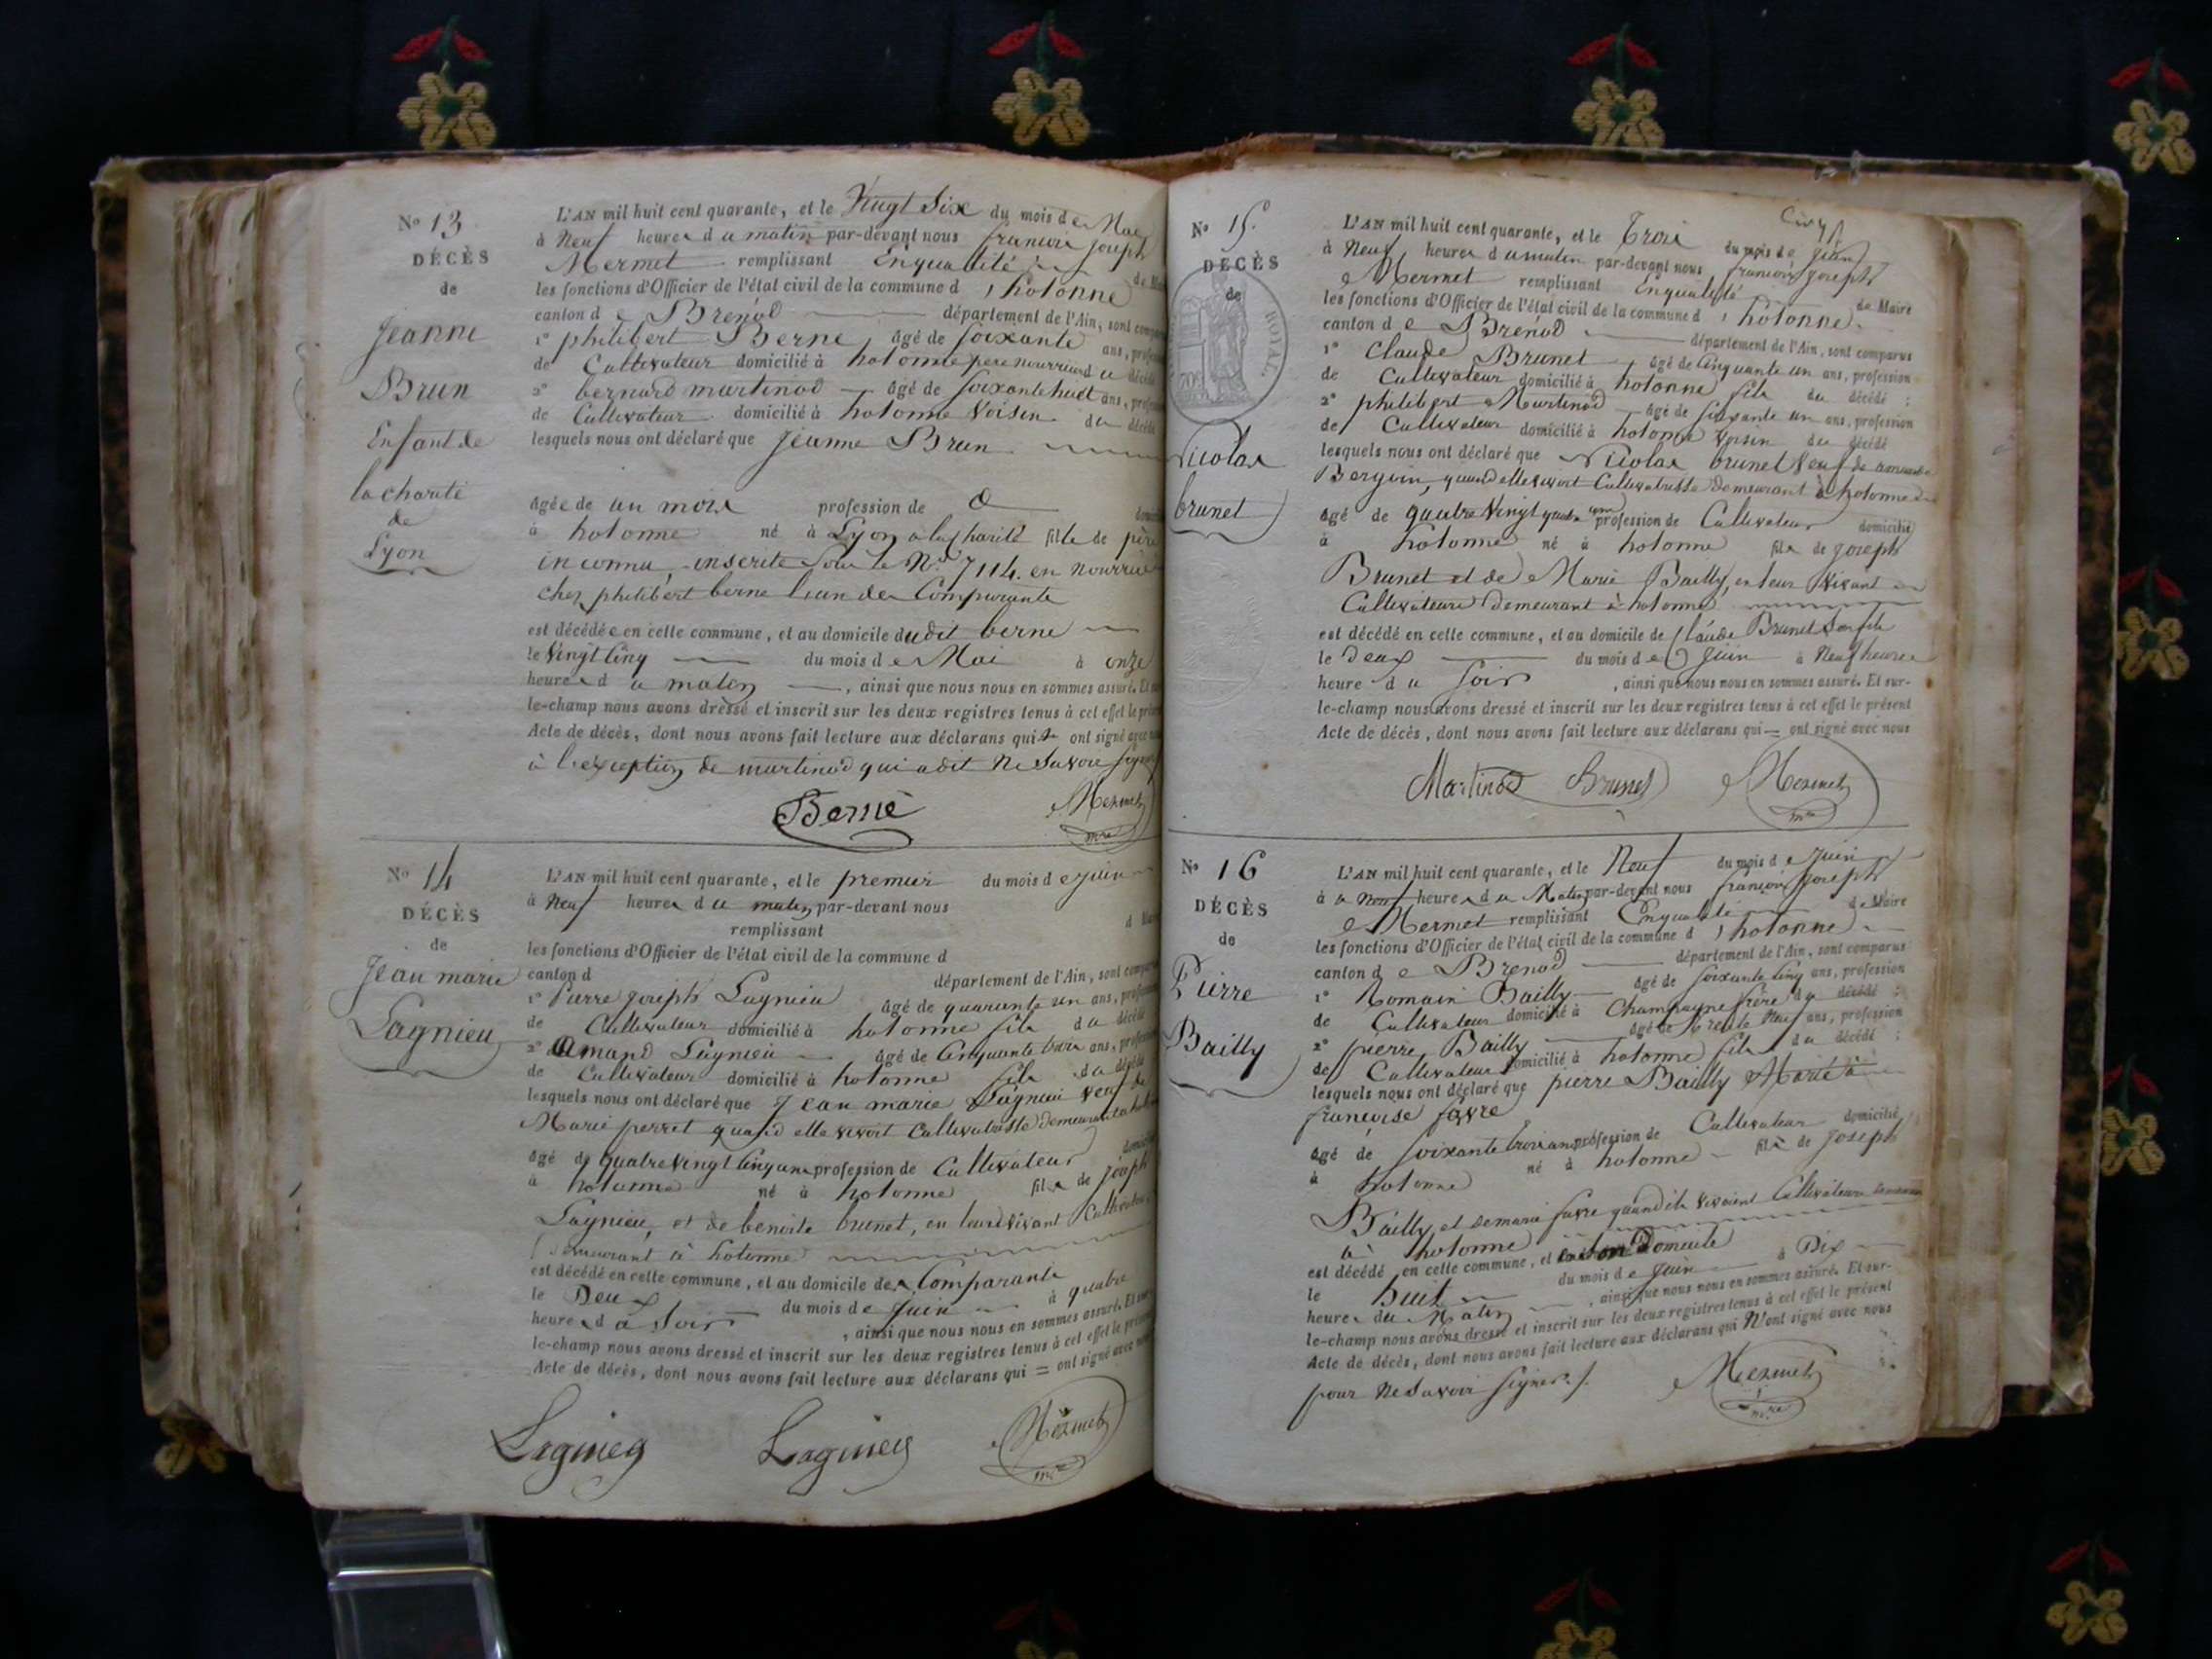 No 13
DÉCÈS
de
Jeanne
Brun
Enfant de
la charité
de
Lyon
L'AN mil huit cent quarante, et le Vingt Six du mois de Mai
à Neuf heures du matin par-devant nous francois joseph
Mermet remplissant Enqualité de
les fonctions d'Officier de l'état civil de la commune d'hotonne
canton de Brénod département de l'Ain, sont
1° philibert Berne, âgé de soixante ans,
de Cultivateur domicilié à hotonne père nourricier du décédé
2° bernard martinod âgé de soixante huit ans,
de Cultivateur domicilié à hotonne Voisin du décédé
lesquels nous ont déclaré que jeanne Brun
âgée de un mois profession de
à hotonne né à Lyon a la charité fille de père
inconnu inscrite sous le No 7114. en nourrice
chez philibert berne l'un des Comparants
est décédée en cette commune, et au domicile dudit berne
le Vingt Cinq du mois de Mai à onze
heures du matin, ainsi que nous nous en sommes assuré. Et
le-champ nous avons dressé et inscrit sur les deux registres tenus à cet effet le
Acte de décès, dont nous avons fait lecture aux déclarans qui ont signé avec
à l'exception de martinod qui a dit Ne Savoir signer
Berne Mermet
mre
No 14
DÉCÈS
de
Jean marie
Lagnieu
L'AN mil huit cent quarante, et le premier du mois de juin
à Neuf heures du matin par-devant nous
remplissant
les fonctions d'Officier de l'état civil de la commune d
canton d département de l'Ain, sont
1° Pierre joseph Lagnieu âgé de quarante un ans,
de Cultivateur domicilié à hotonne fils du décédé
2° Amand Lagnieu âgé de Cinquante trois ans,
de Cultivateur domicilié à hotonne fils du décédé
lesquels nous ont déclaré que Jean marie Lagnieu Veuf de
Marie perret quand elle vivoit Cultivatrisse demeurant
âgé de quatre Vingt Cinq ans profession de Cultivateur
à hotonne né à hotonne fils de joseph
Lagnieu, et de benoite brunet, en leur vivant
demeurant à hotonne
est décédé en cette commune, et au domicile des Comparants
le Deux du mois de juin à quatre
heures du Soir, ainsi que nous nous en sommes assuré. Et
le-champ nous avons dressé et inscrit sur les deux registres tenus à cet effet le
Acte de décès, dont nous avons fait lecture aux déclarans qui = ont signé avec
Lagnieu Lagnieu Mermet
mre
No 15.
DÉCÈS
de
ROYAL
Nicolas
brunet
L'AN mil huit cent quarante, et le Trois du mois de juin
à Neuf heures du matin par-devant nous francois joseph
Mermet remplissant Enqualité de Maire
les fonctions d'Officier de l'état civil de la commune d'hotonne
canton de Brénod département de l'Ain, sont comparus
1° Claude Brunet âgé de Cinquante un ans, profession
de Cultivateur domicilié à hotonne fils du décédé :
2° philibert Martinod âgé de soixante un ans, profession
de Cultivateur domicilié à hotonne Voisin du décédé
lesquels nous ont déclaré que Nicolas brunet Veuf de
quand elle vivoit Cultivatrisse demeurant à hotonne
âgé de quatre Vingt quatre ans profession de Cultivateur domicilié
à hotonne né à hotonne fils de joseph
Brunet et de Marie Bailly, en leur vivant
Cultivateurs demeurant à hotonne
est décédé en cette commune, et au domicile de Claude Brunet Son fils
le Deux du mois de juin à Neuf heures
heure du Soir, ainsi que nous nous en sommes assuré. Et sur-
le-champ nous avons dressé et inscrit sur les deux registres tenus à cet effet le présent
Acte de décès, dont nous avons fait lecture aux déclarans qui = ont signé avec nous
Martinod Brunet Mermet
mre
No 16
DÉCÈS
de
Pierre
Bailly
L'AN mil huit cent quarante, et le Neuf du mois de juin
à Neuf heures du Matin par-devant nous francois joseph
Mermet remplissant Enqualité de Maire
les fonctions d'Officier de l'état civil de la commune d'hotonne
canton de Brenod département de l'Ain, sont comparus
1° Romain Bailly âgé de soixante Cinq ans, profession
de Cultivateur domicilié à Champagne frère du décédé :
2° pierre Bailly âgé de trente Neuf ans, profession
de Cultivateur domicilié à hotonne fils du décédé :
lesquels nous ont déclaré que pierre Bailly Marié à
francoise favre
âgé de soixante trois ans profession de Cultivateur domicilié
à hotonne né à hotonne fils de joseph
Bailly et de marie favre quand ils vivoient Cultivateurs
à hotonne
est décédé en cette commune, et en Son Domicile
le huit du mois de juin à Dix
heures du Matin, ainsi que nous nous en sommes assuré. Et sur-
le-champ nous avons dressé et inscrit sur les deux registres tenus à cet effet le présent
Acte de décès, dont nous avons fait lecture aux déclarans qui N'ont signé avec nous
pour Ne Savoir signer.
Mermet
mre